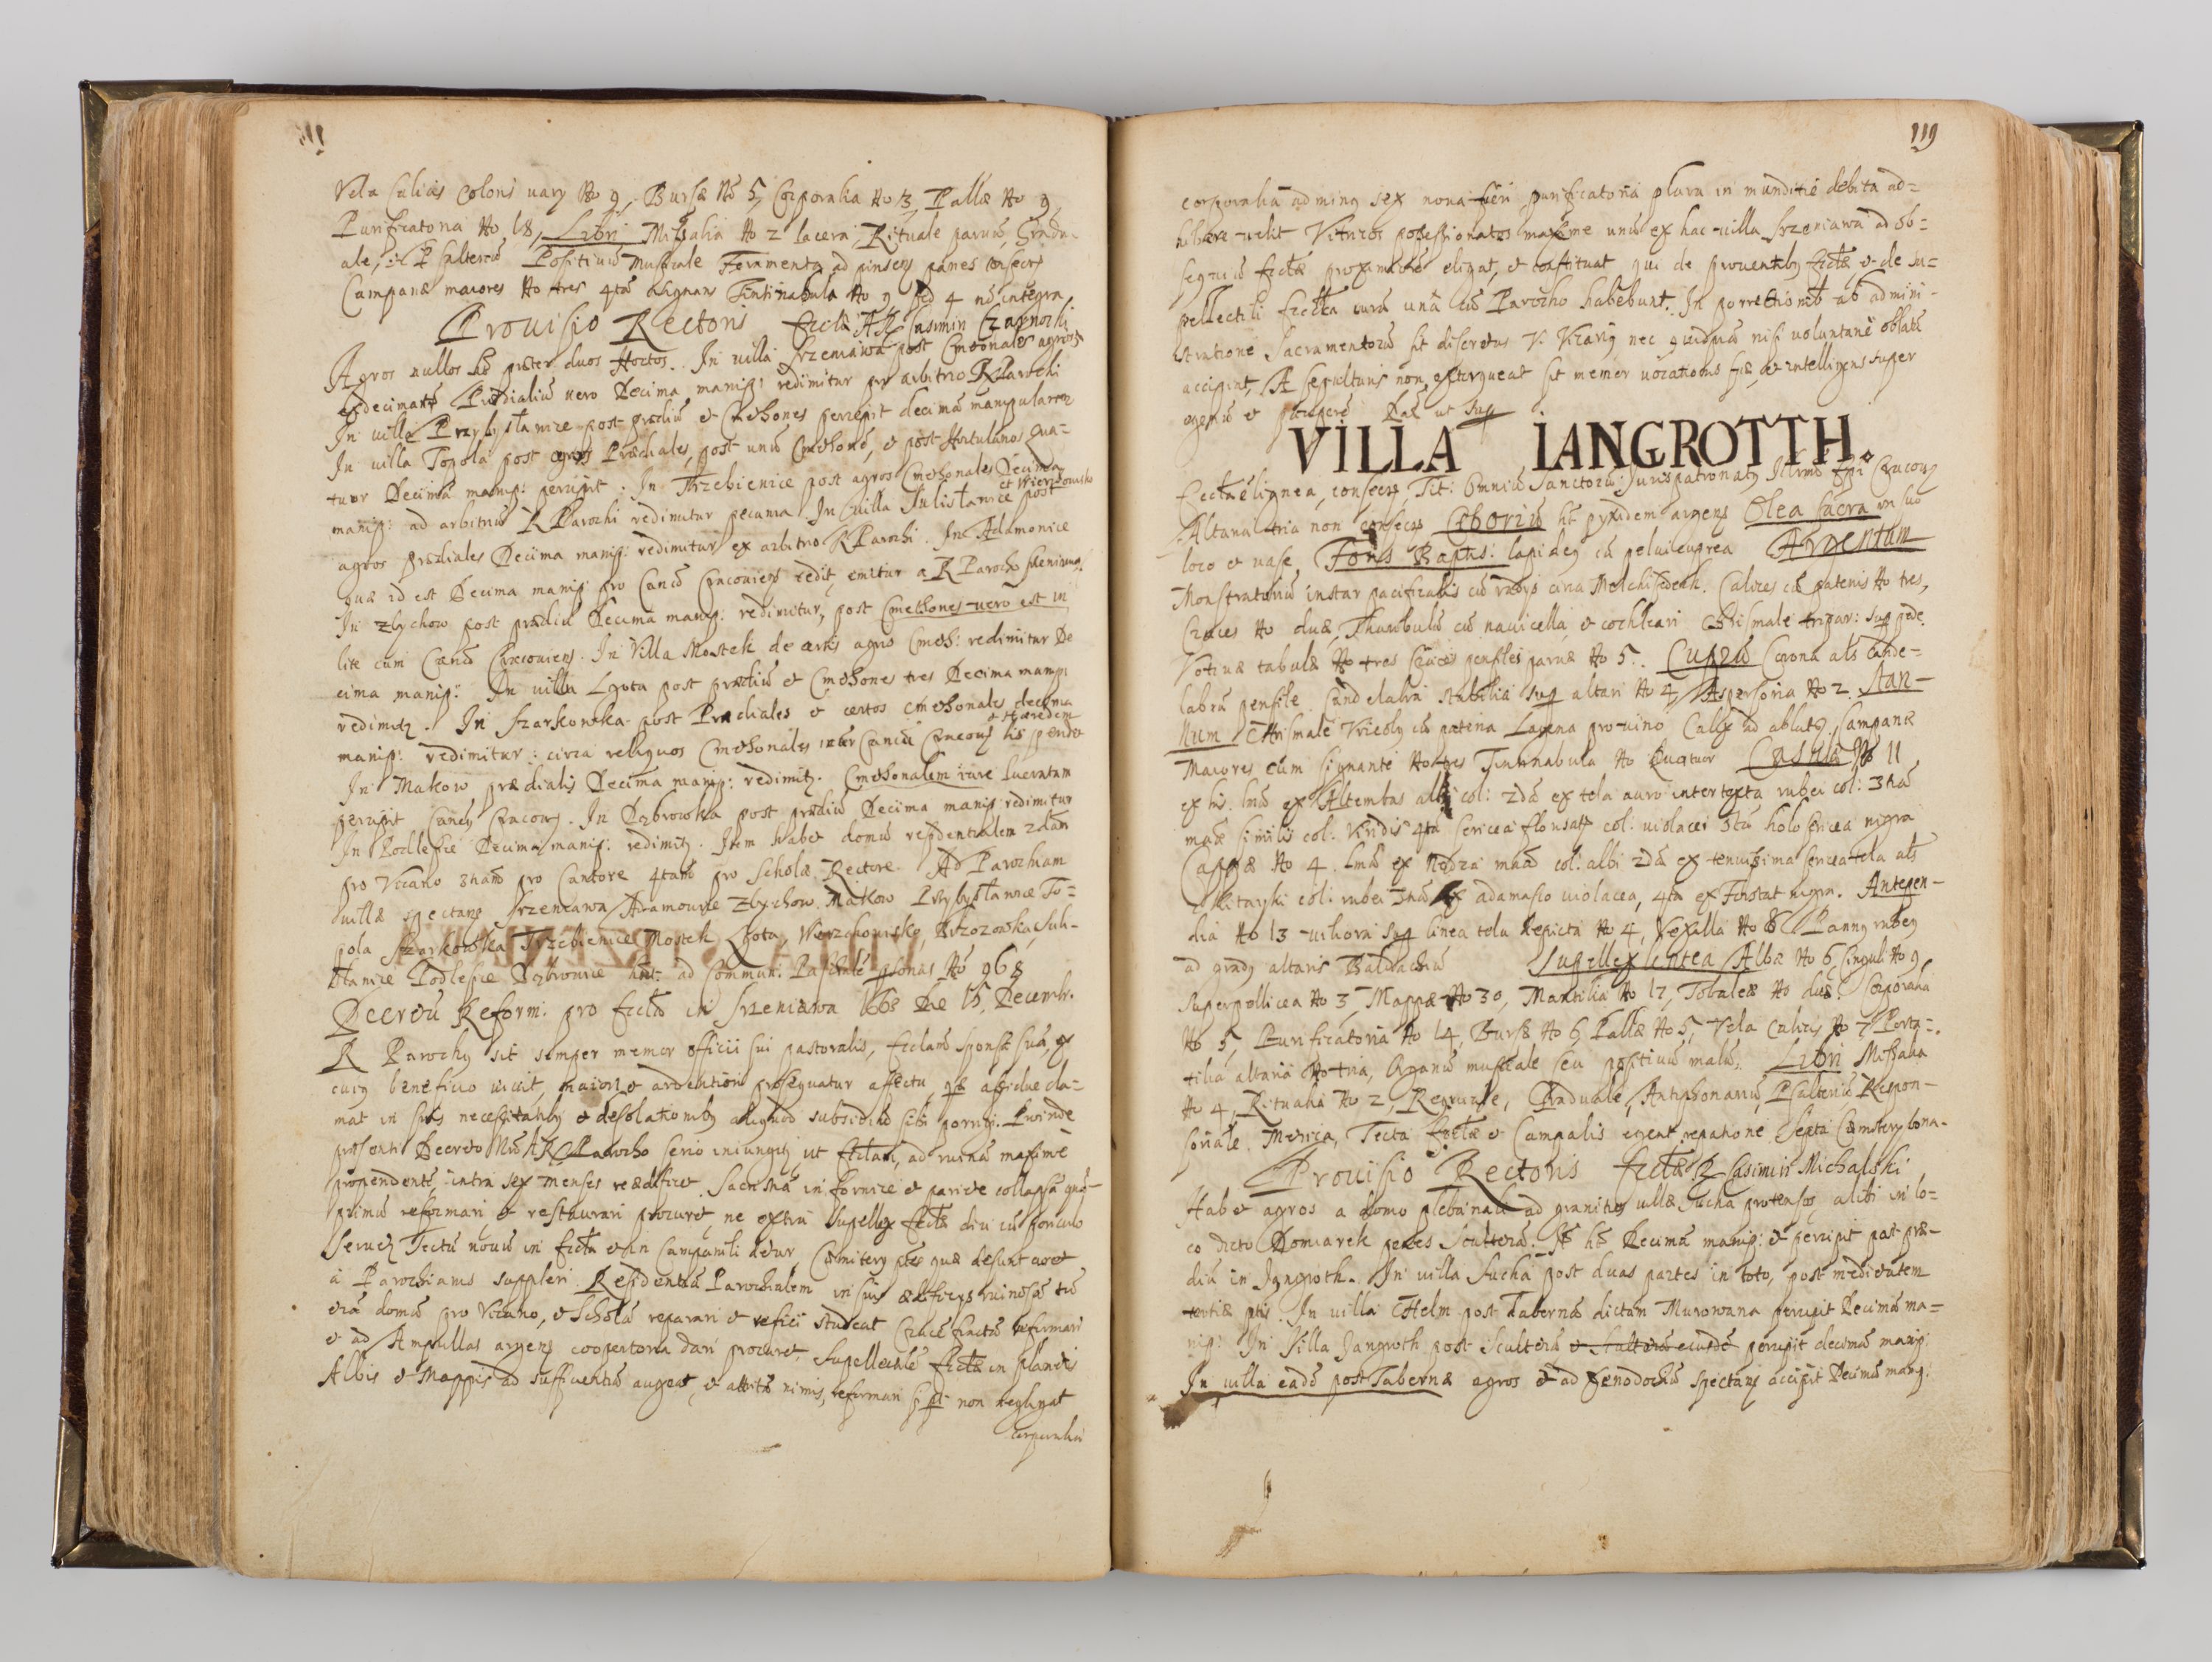 Vela Calicis coloris varij No 9, Bursæ No 5, Corporalia No 13, Pallæ No 9
Purificatoria No 18, Libri Missalia No 2 lacera, Rituale parvũ, Gradu-
ale, et Psalteriũ Positivũ Musicale Feramenta ad pinsen panes consecr
Campanæ maiores No tres 4tã signans Tintinabula No 9 sed 4 nõ integra
Provisio Rectoris Eccłæ AR Casimiri Czarnocki
Agros nullos hẽ præter duos Hortos. In villa Srzeniawa post Cmethonales agros
ex decimatõ Prædialiũ vero Decima manip: redimitur pro arbitrio R Parochi
In villa Przybysłanice post prædiũ et Cmethones percipit decimã manipularem
In villa Topola post agros Prædiales, post unũ Cmethonẽ, et post Hortulanos qua-
tuor Decimã manip: percipit. In Trzebienice post agros Cmethonales Decima
et Wierzchowisko
manip: ad arbitriũ R Parochi redimitur pecunia. In villa Sulisłanice post
agros prædiales Decima manip: redimitur ex arbitrio R Parochi. In Adamovice
quæ id est Decima manip pro Cancũ Cracovien cedit, emitur a R Parocho
In Zbychow post prædiũ Decima manip: redimitur, post Cmethones vero est in
lite cum Canco Cracovien. In Villa Mostek de certis agris Cmeth: redimitur De
cima manip: In villa Lgota post prædiũ et Cmethones tres Decima manip
redimitr. In Szarkowka post Prædiales et certos Cmethonales decima
et Hæredem
manip: redimitur: circa reliquos Cmethonales inter Cancũ Cracovien lis pende
In Makow prædialis Decima manip: redimitr. Cmethonalem iure lucratam
percipit Cancus Cracovien. In Dąbrowka post prædiũ Decima manip redimitur
In Podlesie Decima manip: redimitr. Item habet domũ residentialem 2dam
pro Vicario 3tiam pro Cantore 4tam pro Scholæ Rectore. Ad Parochiam
villæ spectans Srzeniawa Adamovice Zbychow Makow Przybysłanice To-
pola Szarkowka Trzebienice Mostek Lgota, Wierzchowisko, Brzozowka, Suli-
słanice Podlesie Dąbrowice hnt. ad Commun: Paschalẽ psonas No 968
Decretũ Reform: pro Eccła in Srzeniawa 1668 Die 15, Decembr.
R Parochus sit semper memor officii sui pastoralis, Eccłam sponsã suã, ex
cuius beneficio vivit, maiori et ardentiori prosequatur affectu, quæ assidue cla-
mat in suis necessitatibus et desolationibus aliquod subsidiũ sibi porrigi. Proinde
præsenti Decreto Nro AR Parocho serio iniungitr ut Eccłam, ad ruinã maxime
propendentẽ, intra sex menses reædificet. Sacristiã in fornice et pariete collapsã quã-
primũ reformari, et restaurari procuret, ne extra supellex Eccłæ diu cũ periculo
servetr Tectũ novũ in Eccła et in Campanili detur Cæmiterij ptes quæ desunt curet
a Parochianis suppleri. Residentiã Parochialem in suis ædificijs ruinosã tũ
etiã domũ pro Vicario, et Scholã reparari et refici studeat Crucẽ fractã reformari
et ad Ampullas argen coopertoria dari procuret. Supellectilẽ Eccłæ in planetis
Albis et Mappis ad sufficientiã augeat, et attritã nimis, reformari non negligat
corporalia
119
corporalia ad minus sex nova fieri purificatoria plura in munditie debita ad-
hibere velit Vitricos possessionatos maxime unũ ex hac villa Srzeniawa ad ob-
sequiũ Eccłæ proxamiorẽ eligat, et constituat qui de proventibus Eccłæ et de su-
pellectili Eccłæ curã unã cũ Parocho habebunt. In porrectionibus ab admini-
stratione Sacramentorũ sit discretus V. Vicarius nec quidquã nisi voluntariẽ oblatũ
accipiat, A sepulturis non extorqueat sit memor vocationis suæ, et intelligens super
egenũ et pauperẽ Dat ut sup
VILLA IANGROTTH.
Eccła e lignea, consecr, Tit: Omniũ Sanctorũ Jurispatronatus Illrmi Epi Cracovien
Altaria tria non consecr Ciboriũ hẽt pyxidem argen Olea sacra in suo
loco et vase, Fons Baptis: lapideus cũ pelvi cuprea Argentum
Monstratoriũ instar pacificalis cũ radijs circa Melchisedech. Calices cũ patenis No tres,
Cruces No duæ, Thuribulũ cũ navicella, et cochleari Chrismale tripar: sup pede
Votivæ tabulæ No tres Cruces pensiles parvæ No 5. Cuprũ Corona als Cande-
labrũ pensile Candelabra stabilia sup altari No 4, Aspersoria No 2. Stan-
num Chrismale Vrceolus cũ patena Lagena pro vino Calix ad ablut. Campanæ
Maiores cum signante No tres Tintinabula No Quatuor Casulæ No 11
ex his. Imã ex Altembas albi col: 2da ex tela auro intertexta rubei col: 3tiã
mate similis col: Viridis 4ta sericea florisata col: violacei 5ta holosericea nigra
Cappæ No 4. Ima ex modra materia col: albi 2da ex tenuissima sericea tela als
Kitayki col: rubei 3tia ex adamasco violacea, 4ta ex Forstat nigra. Antepen-
dia No 13 viliora sup linea tela depicta No 4, Vexilla No 8 Pannus rubeus
ad gradus altaris Baldachiũ Supellex lintea Albæ No 6 Cinguli No 9
Superpellicea No 3, Mappæ No 30, Mantilia No 17, Tobaleæ No duæ. Corporalia
No 5, Purificatoria No 14, Bursæ No 6, Pallæ No 5, Vela Calicis No 7 Porta-
tilia altaria No tria, Organũ musicale seu positivũ malũ, Libri Missalia
No 4, Ritualia No 2, Requiale, Graduale, Antiphonariũ, Psalteriũ Respon-
soriale. Metrica, Tecta Eccłæ et Campalis egent repatione Septa Cæmiterij bona.
Provisio Rectoris Eccłæ R Casimiri Michalski
Habet agros a domo plebanali ad granities villæ Sucha protensos alibi in lo-
co dicto Domiarek penes Sculteriã. Is hẽt Decimã manip: et percipit post præ-
diũ in Jangroth. In villa Sucha post duas partes in toto, post medietatem
tertiæ ptis. In villa CHelm post Tabernã dictam Murowana percipit Decimã ma-
nip: In Villa Jangroth post Sculteriã et Sculteriã eiusdẽ percipit decimã manip:
In villa eadẽ post Tabernæ agros et ad Xenodochiũ spectans accipit Decimã manip: